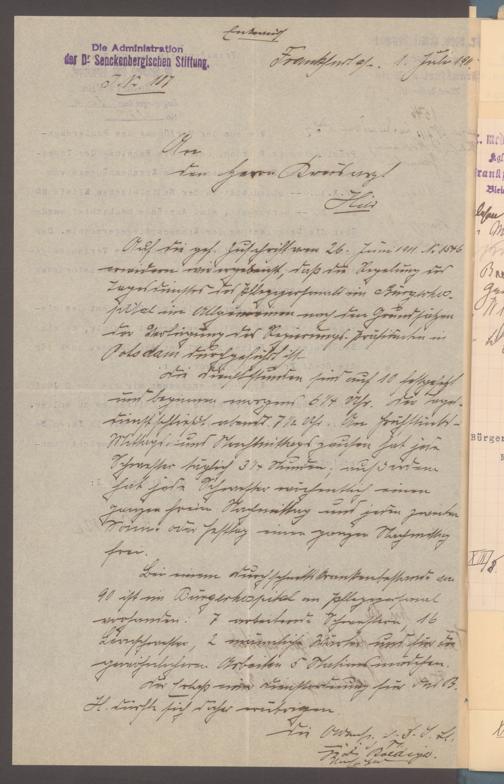 Entwurf
Die Administration
der Dr. Senckenbergischen Stiftung.
J. Nr. 107
Frankfurt a/M. 1. Juli 1911
An
den Herrn Kreisarzt
Hier
Auf die gef. Zuschrift vom 26. Juni 1911 Nr. 1546
erwidern wir ergebenst, daß die Regelung des
Tagesdienstes des Pflegepersonals im Bürgerho-
spital im Allgemeinen nach den Grundsätzen
der Verfügung des Regierungs-Präsidenten in
Potsdam durchgeführt ist.
Die Dienststunden sind auf 10 festgesetzt
und beginnen morgens 6 1/4 Uhr. Der Tages-
dienst schließt abends 7 1/2 Uhr. An Frühstücks-
Mittags- und Nachmittagspausen hat jede
Schwester täglich 3 1/4 Stunden; außerdem
hat jede Schwester wöchentlich einen
ganzen freien Nachmittag und jeden zweiten
Sonn- oder Festtag einen ganzen Nachmittag
frei.
Bei einem Durchschnittskrankenbestande von
90 ist im Bürgerhospital an Pflegepersonal
vorhanden: 7 arbeitende Schwestern, 16
Lernschwestern, 2 männliche Wärter und für die
gewöhnlicheren Arbeiten 5 Stationsmädchen.
Der Erlaß einer Dienstordnung für das B.
H. dürfte sich daher erübrigen.
Die Adm. d. D. S. St.
Bürger